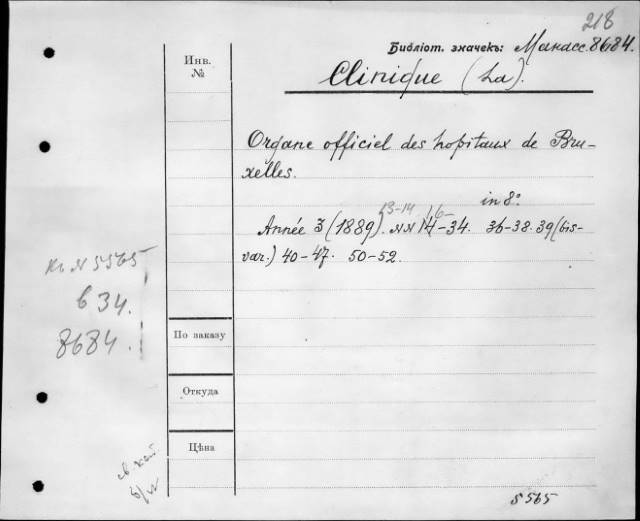 218
Библіот. значекъ: Манасс. 8684.
Инв.
№
Clinique (La).
Organe officiel des hopitaux de Bru-
xelles.
in 8°
13-14 16-
Année 3 (1889). NN 14-34. 36-38. 39 (bis-
var.) 40-47. 50-52.
N 5565
б 34.
8684.
По заказу
Откуда
Цѣна
5565